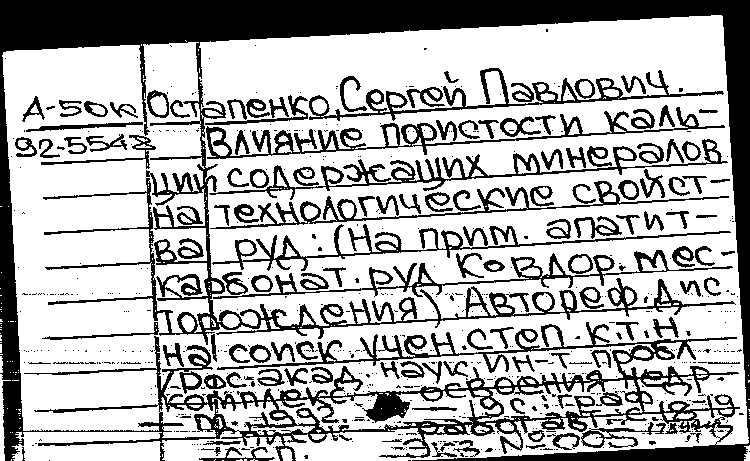 А-50к Остапенко, Сергей Павлович.
92-5548 Влияние пористости каль-
цийсодержащих минералов
на технологические свойст-
ва руд: (На прим. апатит-
карбонат. руд Ковдор. мес-
торождения): Автореф. дис.
на соиск. учен. степ. к.т.н.
/ Рос. акад. наук, Ин-т пробл.
комплекс. освоения недр.
— М., 1992. — 19 с.: граф.
Список работ авт.: с. 18-19
Экз. № 005.